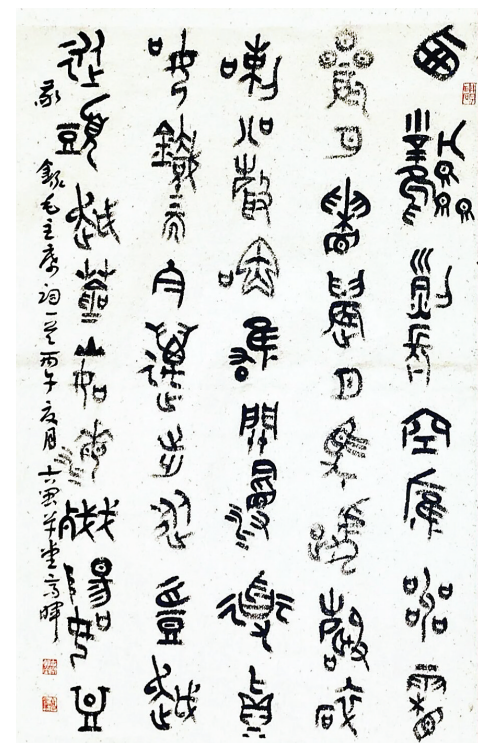 西風烈長空雁叫霜
晨月霜晨月馬蹄聲碎
喇叭聲咽雄關漫道真
如鐵而今邁步從頭越
從頭越蒼山如海殘陽如血
錄毛主席詞一首丙午夏月草堂高暉